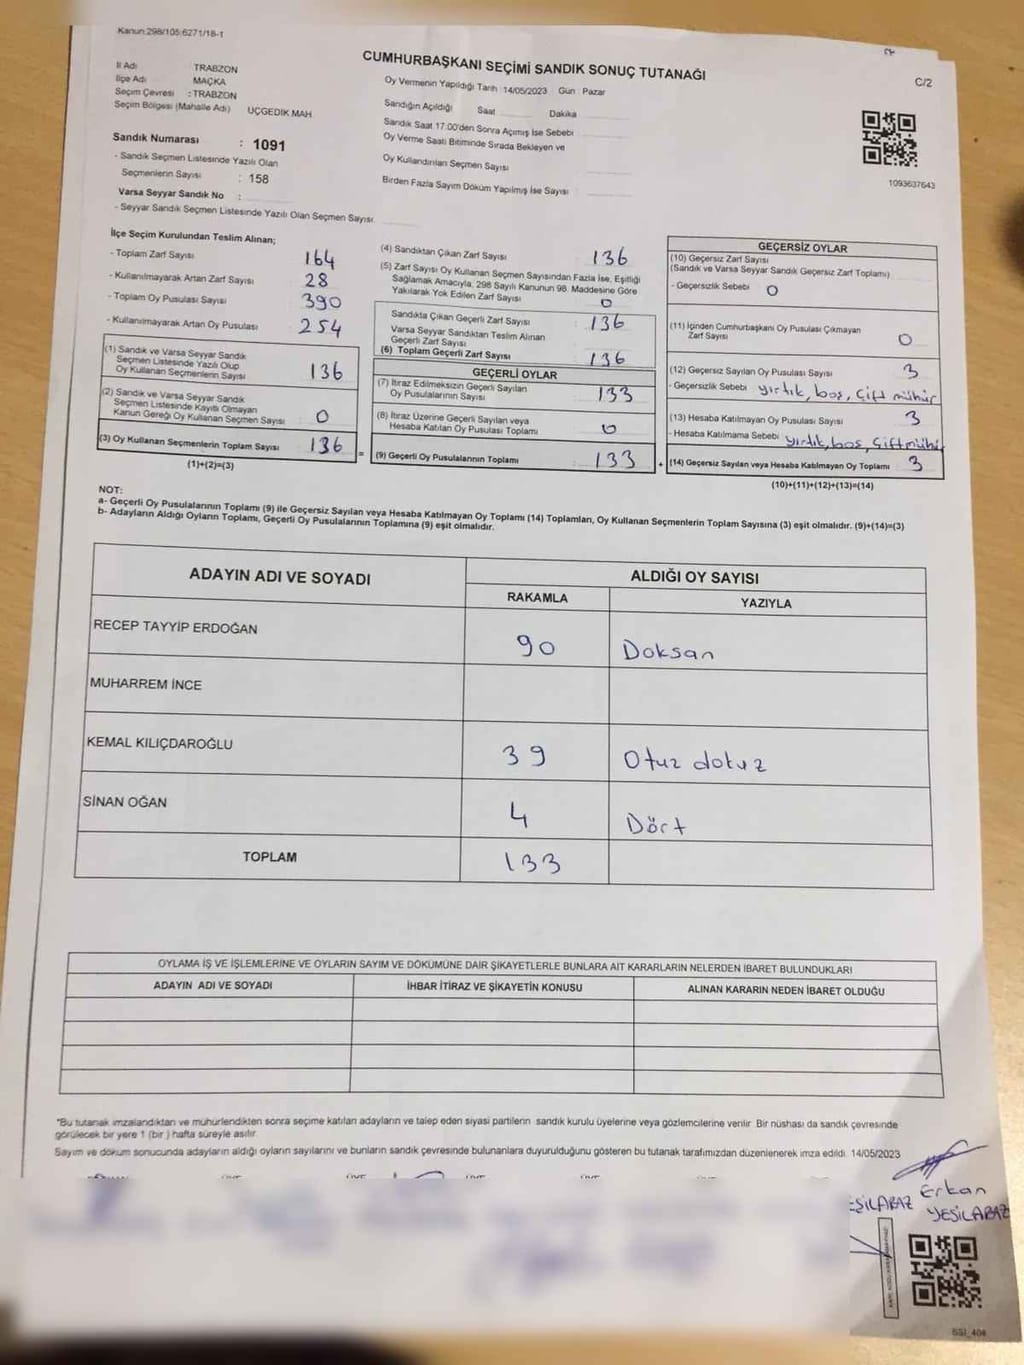 Kanun:298/105;6271/18-1
CUMHURBAŞKANI SEÇİMİ SANDIK SONUÇ TUTANAĞI
C/2
İl Adı TRABZON
İlçe Adı MAÇKA
Seçim Çevresi : TRABZON
Seçim Bölgesi (Mahalle Adı) UÇGEDİK MAH
Oy Vermenin Yapıldığı Tarih : 14/05/2023 Gün : Pazar
Sandığın Açıldığı Saat Dakika
Sandık Saat 17:00'den Sonra Açımış İse Sebebi
Oy Verme Saati Bitiminde Sırada Bekleyen ve
Oy Kullandırılan Seçmen Sayısı
Birden Fazla Sayım Döküm Yapılmış İse Sayısı
1093637643
Sandık Numarası : 1091
- Sandık Seçmen Listesinde Yazılı Olan
Seçmenlerin Sayısı : 158
Varsa Seyyar Sandık No :
- Seyyar Sandık Seçmen Listesinde Yazılı Olan Seçmen Sayısı:
İlçe Seçim Kurulundan Teslim Alınan;
- Toplam Zarf Sayısı 164
- Kullanılmayarak Artan Zarf Sayısı 28
- Toplam Oy Pusulası Sayısı 390
- Kullanılmayarak Artan Oy Pusulası 254
(1) Sandık ve Varsa Seyyar Sandık
Seçmen Listesinde Yazılı Olup
Oy Kullanan Seçmenlerin Sayısı 136
(2) Sandık ve Varsa Seyyar Sandık
Seçmen Listesinde Kayıtlı Olmayan
Kanun Gereği Oy Kullanan Seçmen Sayısı 0
(3) Oy Kullanan Seçmenlerin Toplam Sayısı 136 =
(1)+(2)=(3)
(4) Sandıktan Çıkan Zarf Sayısı 136
(5) Zarf Sayısı Oy Kullanan Seçmen Sayısından Fazla İse, Eşitliği
Sağlamak Amacıyla, 298 Sayılı Kanunun 98. Maddesine Göre
Yakılarak Yok Edilen Zarf Sayısı 0
Sandıkta Çıkan Geçerli Zarf Sayısı : 136
Varsa Seyyar Sandıktan Teslim Alınan
Geçerli Zarf Sayısı
(6) Toplam Geçerli Zarf Sayısı 136
GEÇERLİ OYLAR
(7) İtiraz Edilmeksizin Geçerli Sayılan
Oy Pusulalarının Sayısı 133
(8) İtiraz Üzerine Geçerli Sayılan veya
Hesaba Katılan Oy Pusulası Toplamı 0
(9) Geçerli Oy Pusulalarının Toplamı : 133 +
GEÇERSİZ OYLAR
(10) Geçersiz Zarf Sayısı
(Sandık ve Varsa Seyyar Sandık Geçersiz Zarf Toplamı)
- Geçersizlik Sebebi 0
(11) İçinden Cumhurbaşkanı Oy Pusulası Çıkmayan
Zarf Sayısı 0
(12) Geçersiz Sayılan Oy Pusulası Sayısı 3
- Geçersizlik Sebebi yırtık, boş, çift mühür
(13) Hesaba Katılmayan Oy Pusulası Sayısı 3
- Hesaba Katılmama Sebebi yırtık, boş, çift mühür
(14) Geçersiz Sayılan veya Hesaba Katılmayan Oy Toplamı 3
(10)+(11)+(12)+(13)=(14)
NOT:
a- Geçerli Oy Pusulalarının Toplamı (9) ile Geçersiz Sayılan veya Hesaba Katılmayan Oy Toplamı (14) Toplamları, Oy Kullanan Seçmenlerin Toplam Sayısına (3) eşit olmalıdır. (9)+(14)=(3)
b- Adayların Aldığı Oyların Toplamı, Geçerli Oy Pusulalarının Toplamına (9) eşit olmalıdır.
ADAYIN ADI VE SOYADI ALDIĞI OY SAYISI
RAKAMLA YAZIYLA
RECEP TAYYİP ERDOĞAN 90 Doksan
MUHARREM İNCE
KEMAL KILIÇDAROĞLU 39 Otuz dokuz
SİNAN OĞAN 4 Dört
TOPLAM 133
OYLAMA İŞ VE İŞLEMLERİNE VE OYLARIN SAYIM VE DÖKÜMÜNE DAİR ŞİKAYETLERLE BUNLARA AİT KARARLARIN NELERDEN İBARET BULUNDUKLARI
ADAYIN ADI VE SOYADI İHBAR İTİRAZ VE ŞİKAYETİN KONUSU ALINAN KARARIN NEDEN İBARET OLDUĞU
*Bu tutanak imzalandıktan ve mühürlendikten sonra seçime katılan adayların ve talep eden siyasi partilerin sandık kurulu üyelerine veya gözlemcilerine verilir. Bir nüshası da sandık çevresinde
görülecek bir yere 1 (bir) hafta süreyle asılır.
Sayım ve döküm sonucunda adayların aldığı oyların sayılarını ve bunların sandık çevresinde bulunanlara duyurulduğunu gösteren bu tutanak tarafımızdan düzenlenerek imza edildi. 14/05/2023
Erkan
YEŞİLABAZ
SSİ_404